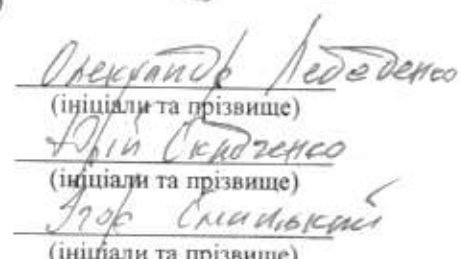 Олександр Лебеденко
(ініціали та прізвище)
Юрій
(ініціали та прізвище)
Ігор
(ініціали та прізвище)